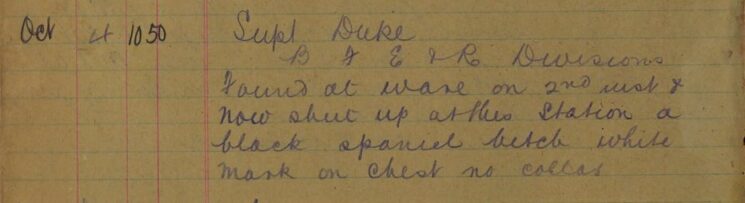 Oct 4 1050 Supt Duke
B F E & R Divisions
Found at ware on 2nd inst &
Now shut up at this Station a
black spaniel bitch white
Mark on Chest no collar